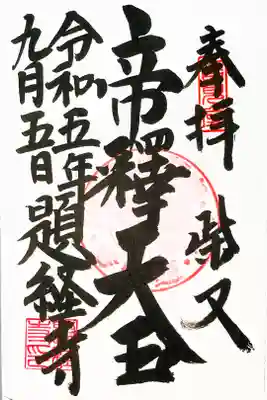 奉拝 柴又
帝釋天王
令和五年
九月五日 題経寺